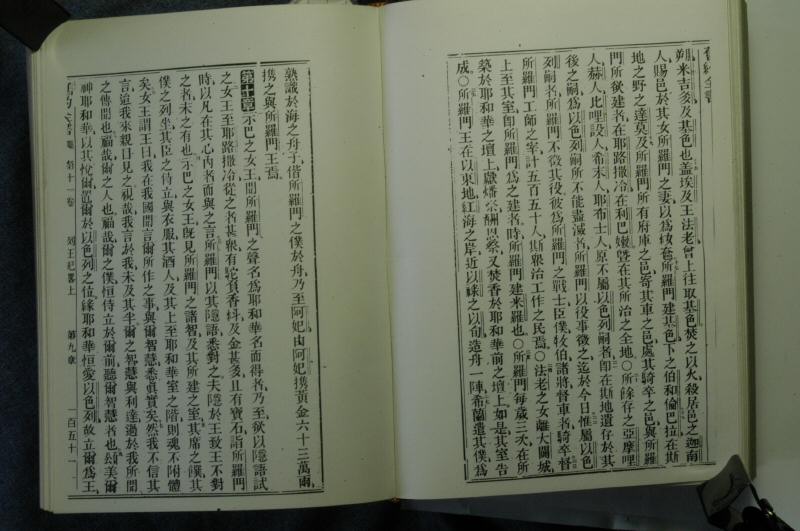 舊約全書
朔米吉多及基色也蓋埃及王法老曾上往取基色焚之以火殺居邑之迦南
人賜邑於其女所羅門之妻以爲妝奩所羅門建基色下之伯和倫巴拉在斯
地之野之達莫及所羅門所有府庫之邑寄其車之邑處其騎卒之邑與所羅
門所欲建者在耶路撒冷在利巴嫩曁在其所治之全地○所餘存之亞摩哩
人赫人比哩設人希未人耶布士人原不屬以色列嗣者卽在斯地遺存於其
後之嗣爲以色列嗣所不能盡滅者所羅門以役事徵之迄於今日惟屬以色
列嗣者所羅門不徵其役彼爲所羅門之戰士臣僕牧伯諸將督車者騎卒督
所羅門工師之宰計五百五十人斯衆治工作之民焉○法老之女離大闢城
上至其室卽所羅門爲之建者時所羅門建米羅也○所羅門每歲三次在所
築於耶和華之壇上獻燔祭酬恩祭又焚香於耶和華前之壇上如是其室告
成○所羅門王在以東地紅海之岸近以祿之以旬造舟一陣希蘭遣其僕爲
熟識於海之舟子偕所羅門之僕於舟乃至阿妃由阿妃攜黃金六十三萬兩
攜之與所羅門王焉
第十章示巴之女王聞所羅門之聲名爲耶和華名而得者乃至欲以隱語試
之女王至耶路撒冷從之者甚衆有駝負香料及金甚多且有寶石詣所羅門
時以凡在其心內者而與之言所羅門以其隱語悉對之夫隱於王致王不對
之者未之有也示巴之女王旣見所羅門之諸智及其所建之室其席之饌其
僕之列坐其臣之侍立與衣服其酒人及其上至耶和華室之階則魂不附體
矣女王謂王曰我在我國聞言爾所作之事與爾智慧悉眞實矣然我不信其
言迨我來親目見之視哉我言於我未及其半爾之智慧與利達過於我所聞
之傳聞也福哉爾之人也福哉爾之僕恒侍立於爾前聽爾智慧者也頌美爾
神耶和華以其悅爾置爾於以色列之位緣耶和華恒愛以色列故立爾爲王
舊約全書 第十一卷 列王紀畧上 第九章 一百五十一